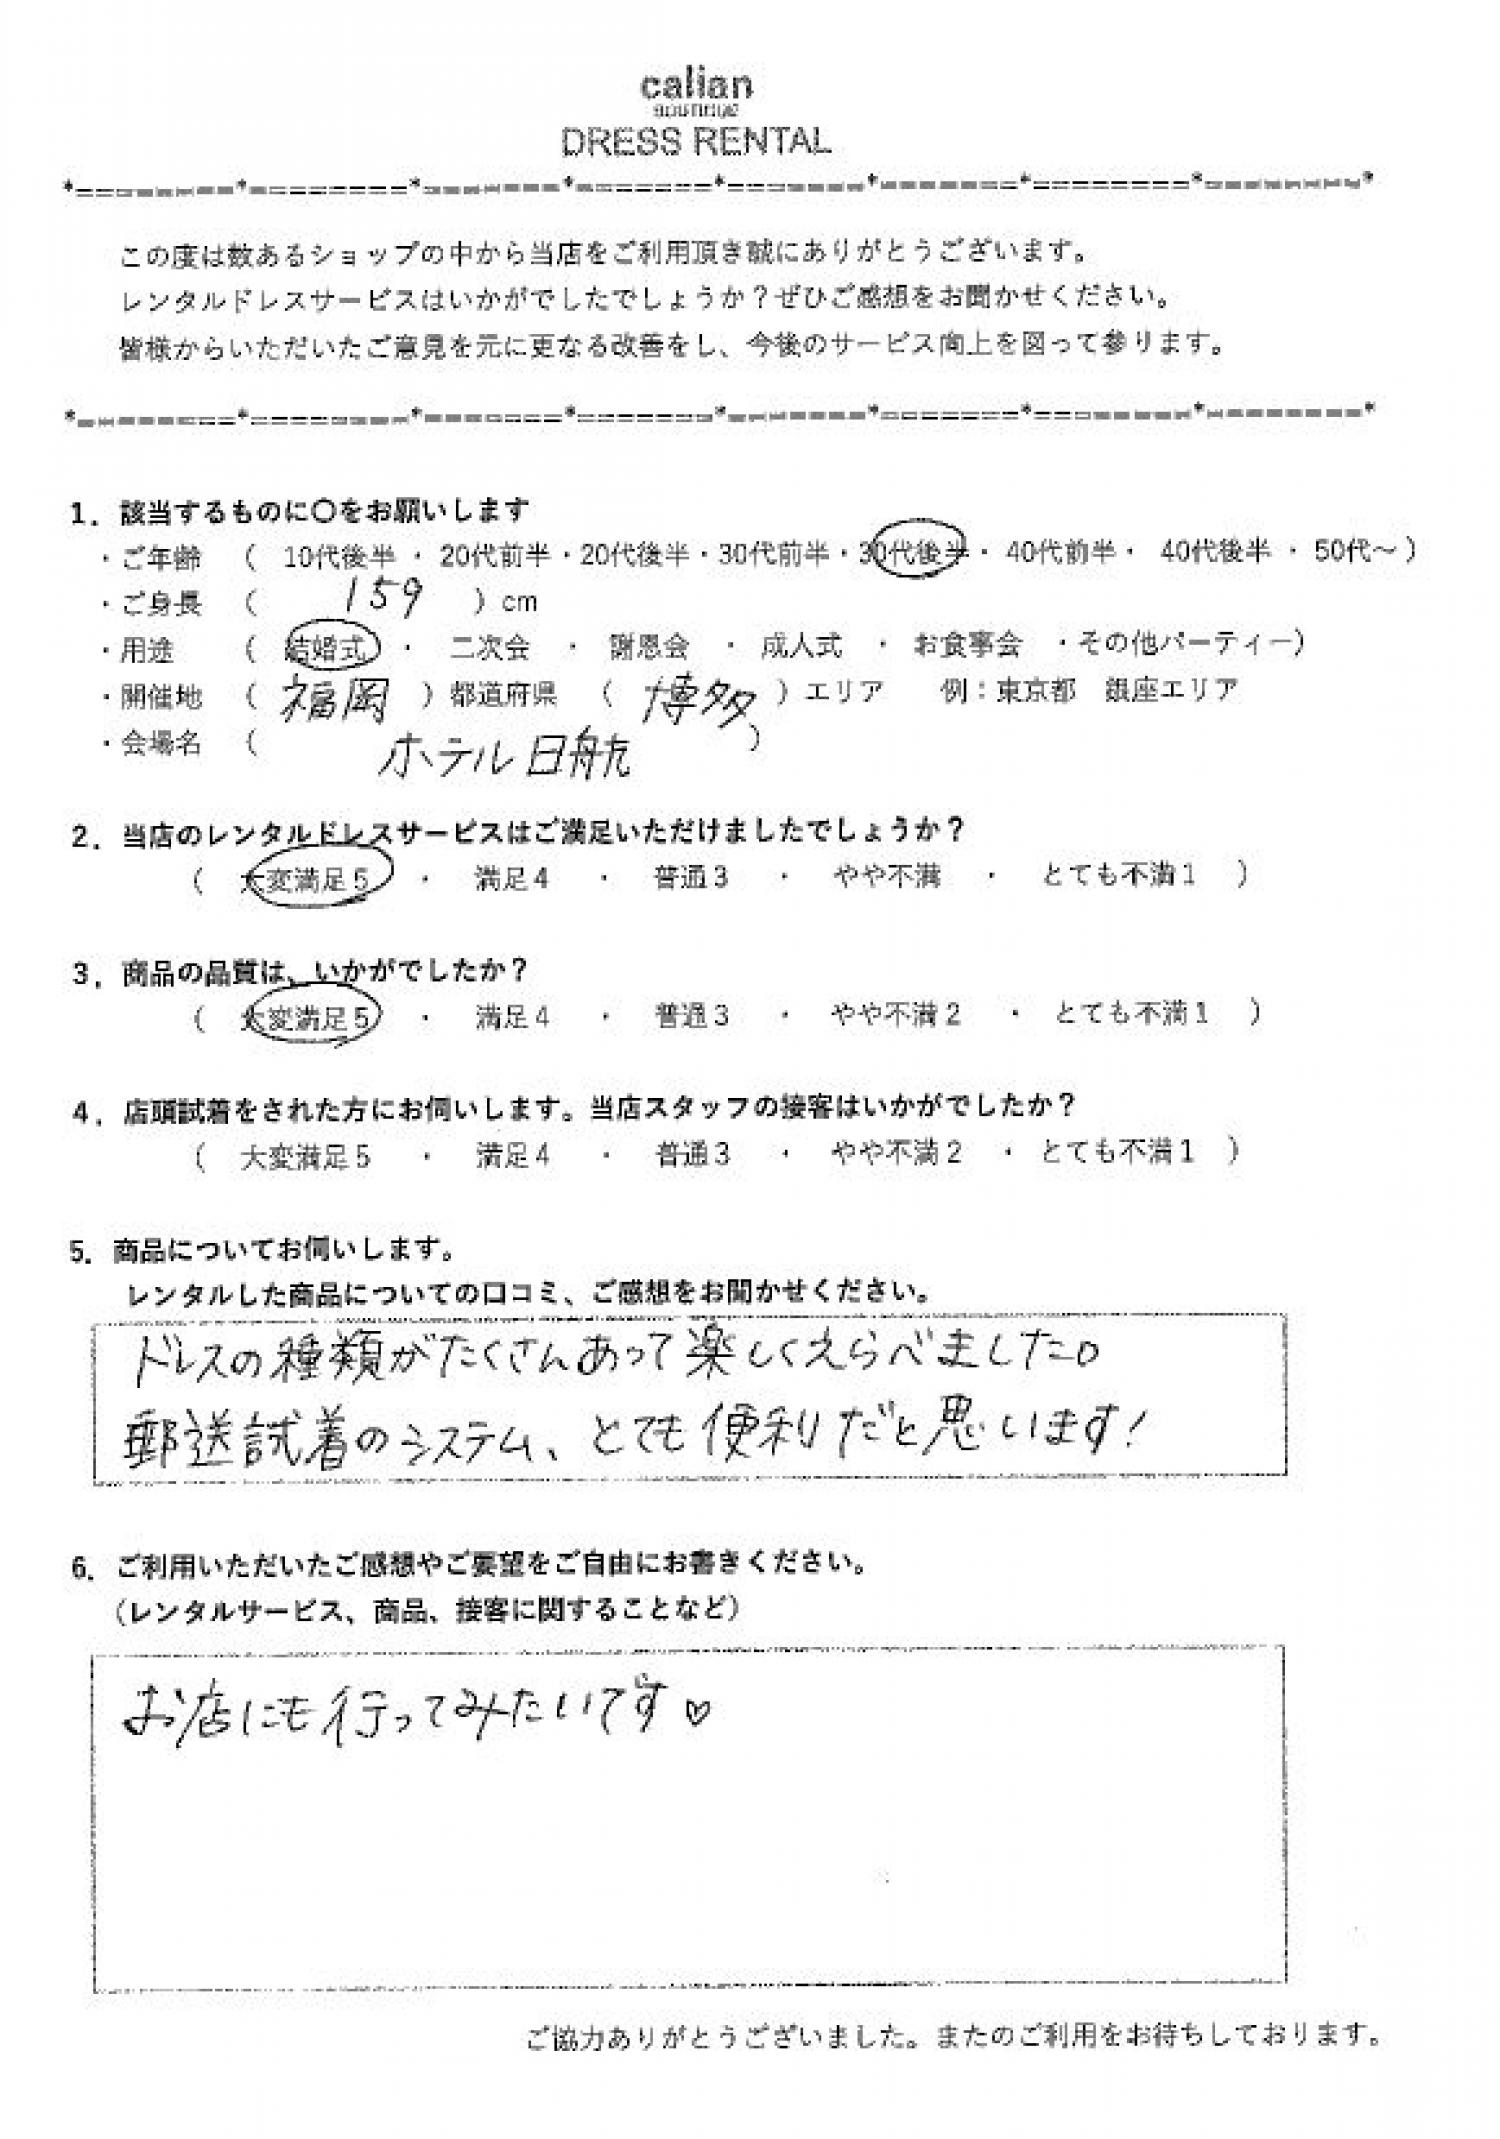 calian
BOUTIQUE
DRESS RENTAL
*========*========*=======*=======*=======*=======*========*========*
この度は数あるショップの中から当店をご利用頂き誠にありがとうございます。
レンタルドレスサービスはいかがでしたでしょうか？ぜひご感想をお聞かせください。
皆様からいただいたご意見を元に更なる改善をし、今後のサービス向上を図って参ります。
*========*========*=======*=======*=======*=======*========*========*
1．該当するものに〇をお願いします
・ご年齢 （ 10代後半 ・ 20代前半・20代後半・30代前半・30代後半・ 40代前半・ 40代後半 ・ 50代～）
・ご身長 （ 159 ）cm
・用途 （ 結婚式 ・ 二次会 ・ 謝恩会 ・ 成人式 ・ お食事会 ・その他パーティー）
・開催地 （ 福岡 ）都道府県 （ 博多 ）エリア 例：東京都 銀座エリア
・会場名 （ ホテル日航 ）
2．当店のレンタルドレスサービスはご満足いただけましたでしょうか？
（ 大変満足5 ・ 満足4 ・ 普通3 ・ やや不満 ・ とても不満1 ）
3．商品の品質は、いかがでしたか？
（ 大変満足5 ・ 満足4 ・ 普通3 ・ やや不満2 ・ とても不満1 ）
4．店頭試着をされた方にお伺いします。当店スタッフの接客はいかがでしたか？
（ 大変満足5 ・ 満足4 ・ 普通3 ・ やや不満2 ・ とても不満1 ）
5．商品についてお伺いします。
レンタルした商品についての口コミ、ご感想をお聞かせください。
ドレスの種類がたくさんあって楽しくえらべました。
郵送試着のシステム、とても便利だと思います！
6．ご利用いただいたご感想やご要望をご自由にお書きください。
（レンタルサービス、商品、接客に関することなど）
お店にも行ってみたいです♡
ご協力ありがとうございました。またのご利用をお待ちしております。